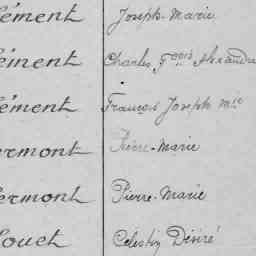 lément Joseph-Marie
lément Charles Fçois Alexandre
lément François Joseph Mie
ermont Pierre-Marie
lermont Pierre-Marie
louet Célestin Désiré